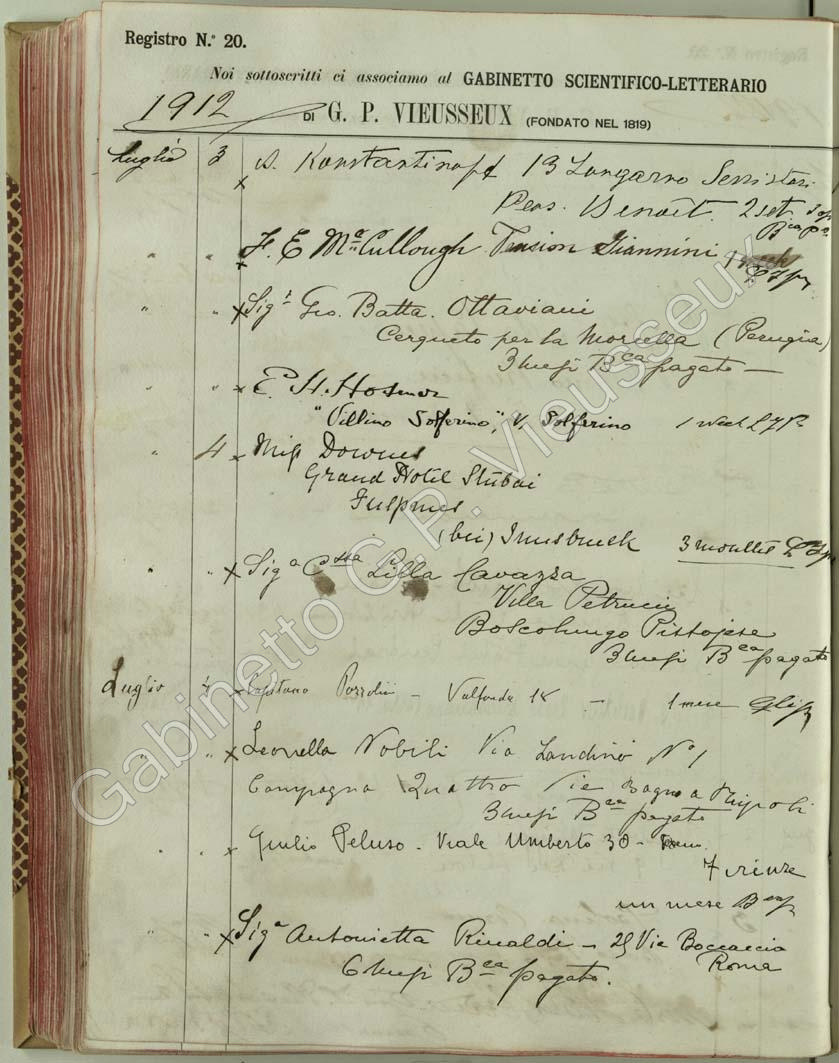 Registro N.° 20.
Noi sottoscritti ci associamo al GABINETTO SCIENTIFICO-LETTERARIO
1912 DI G. P. VIEUSSEUX (FONDATO NEL 1819)
Luglio 3 x 13 Lungarno Serristori
Pens. Benoit. 2 set.
" " x F. E. McCullough Pension Giannini
" " x Sigr Gio. Batta. Ottaviani
Cerqueto per la Morcella (Perugia)
3 mesi Bca pagato —
" " x E. H. Hosmer
"Villino Solferino", V. Solferino 1 week
" 4 x Miss Downes
Grand Hotel Stubai
Fulpmes
(bei) Innsbruck 3 months
" " x Siga Cssa Lilla Cavazza
Villa Petrucci
Boscolungo Pistojese
3 mesi Bca pagato
Luglio 4 x Capitano — Valfonda 18 — 1 mese
" " x Leonella Nobili Via Landino No 1
Campagna Quattro Vie Bagno a Ripoli
3 mesi Bca pagato
" " x Giulio Peluso - Viale Umberto 30 -
Firenze
un mese
" " x Siga Antonietta Rinaldi — 25 Via Boccaccio
Roma
6 mesi Bca pagato.
Gabinetto G.P. Vieusseux